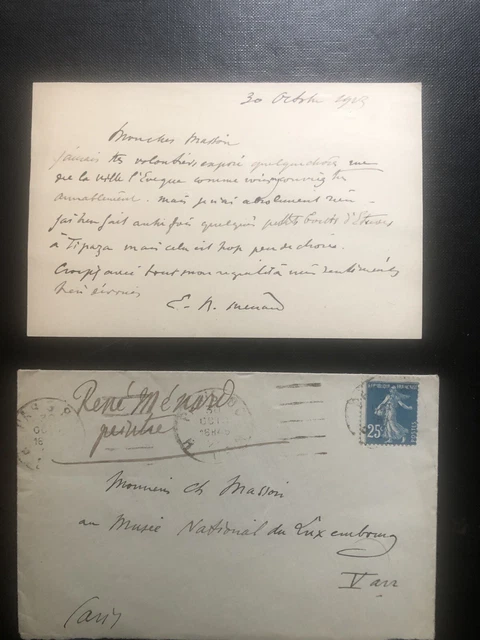 30 Octobre 1923
Mon cher Masson
J'aurais très volontiers exposé quelque chose rue
de la Ville l'Evêque comme vous
aimablement. mais je n'ai absolument rien
J'ai bien fait autrefois quelques petits bouts d'Etudes
à Tipaza mais cela est trop peu de chose.
Croyez avec tous mes regrets à mes sentiments
bien dévoués
E. R. Menard
René Ménard
peintre
25c
POSTES
Monsieur Ch Masson
au Musée National du Luxembourg
V arr
Paris